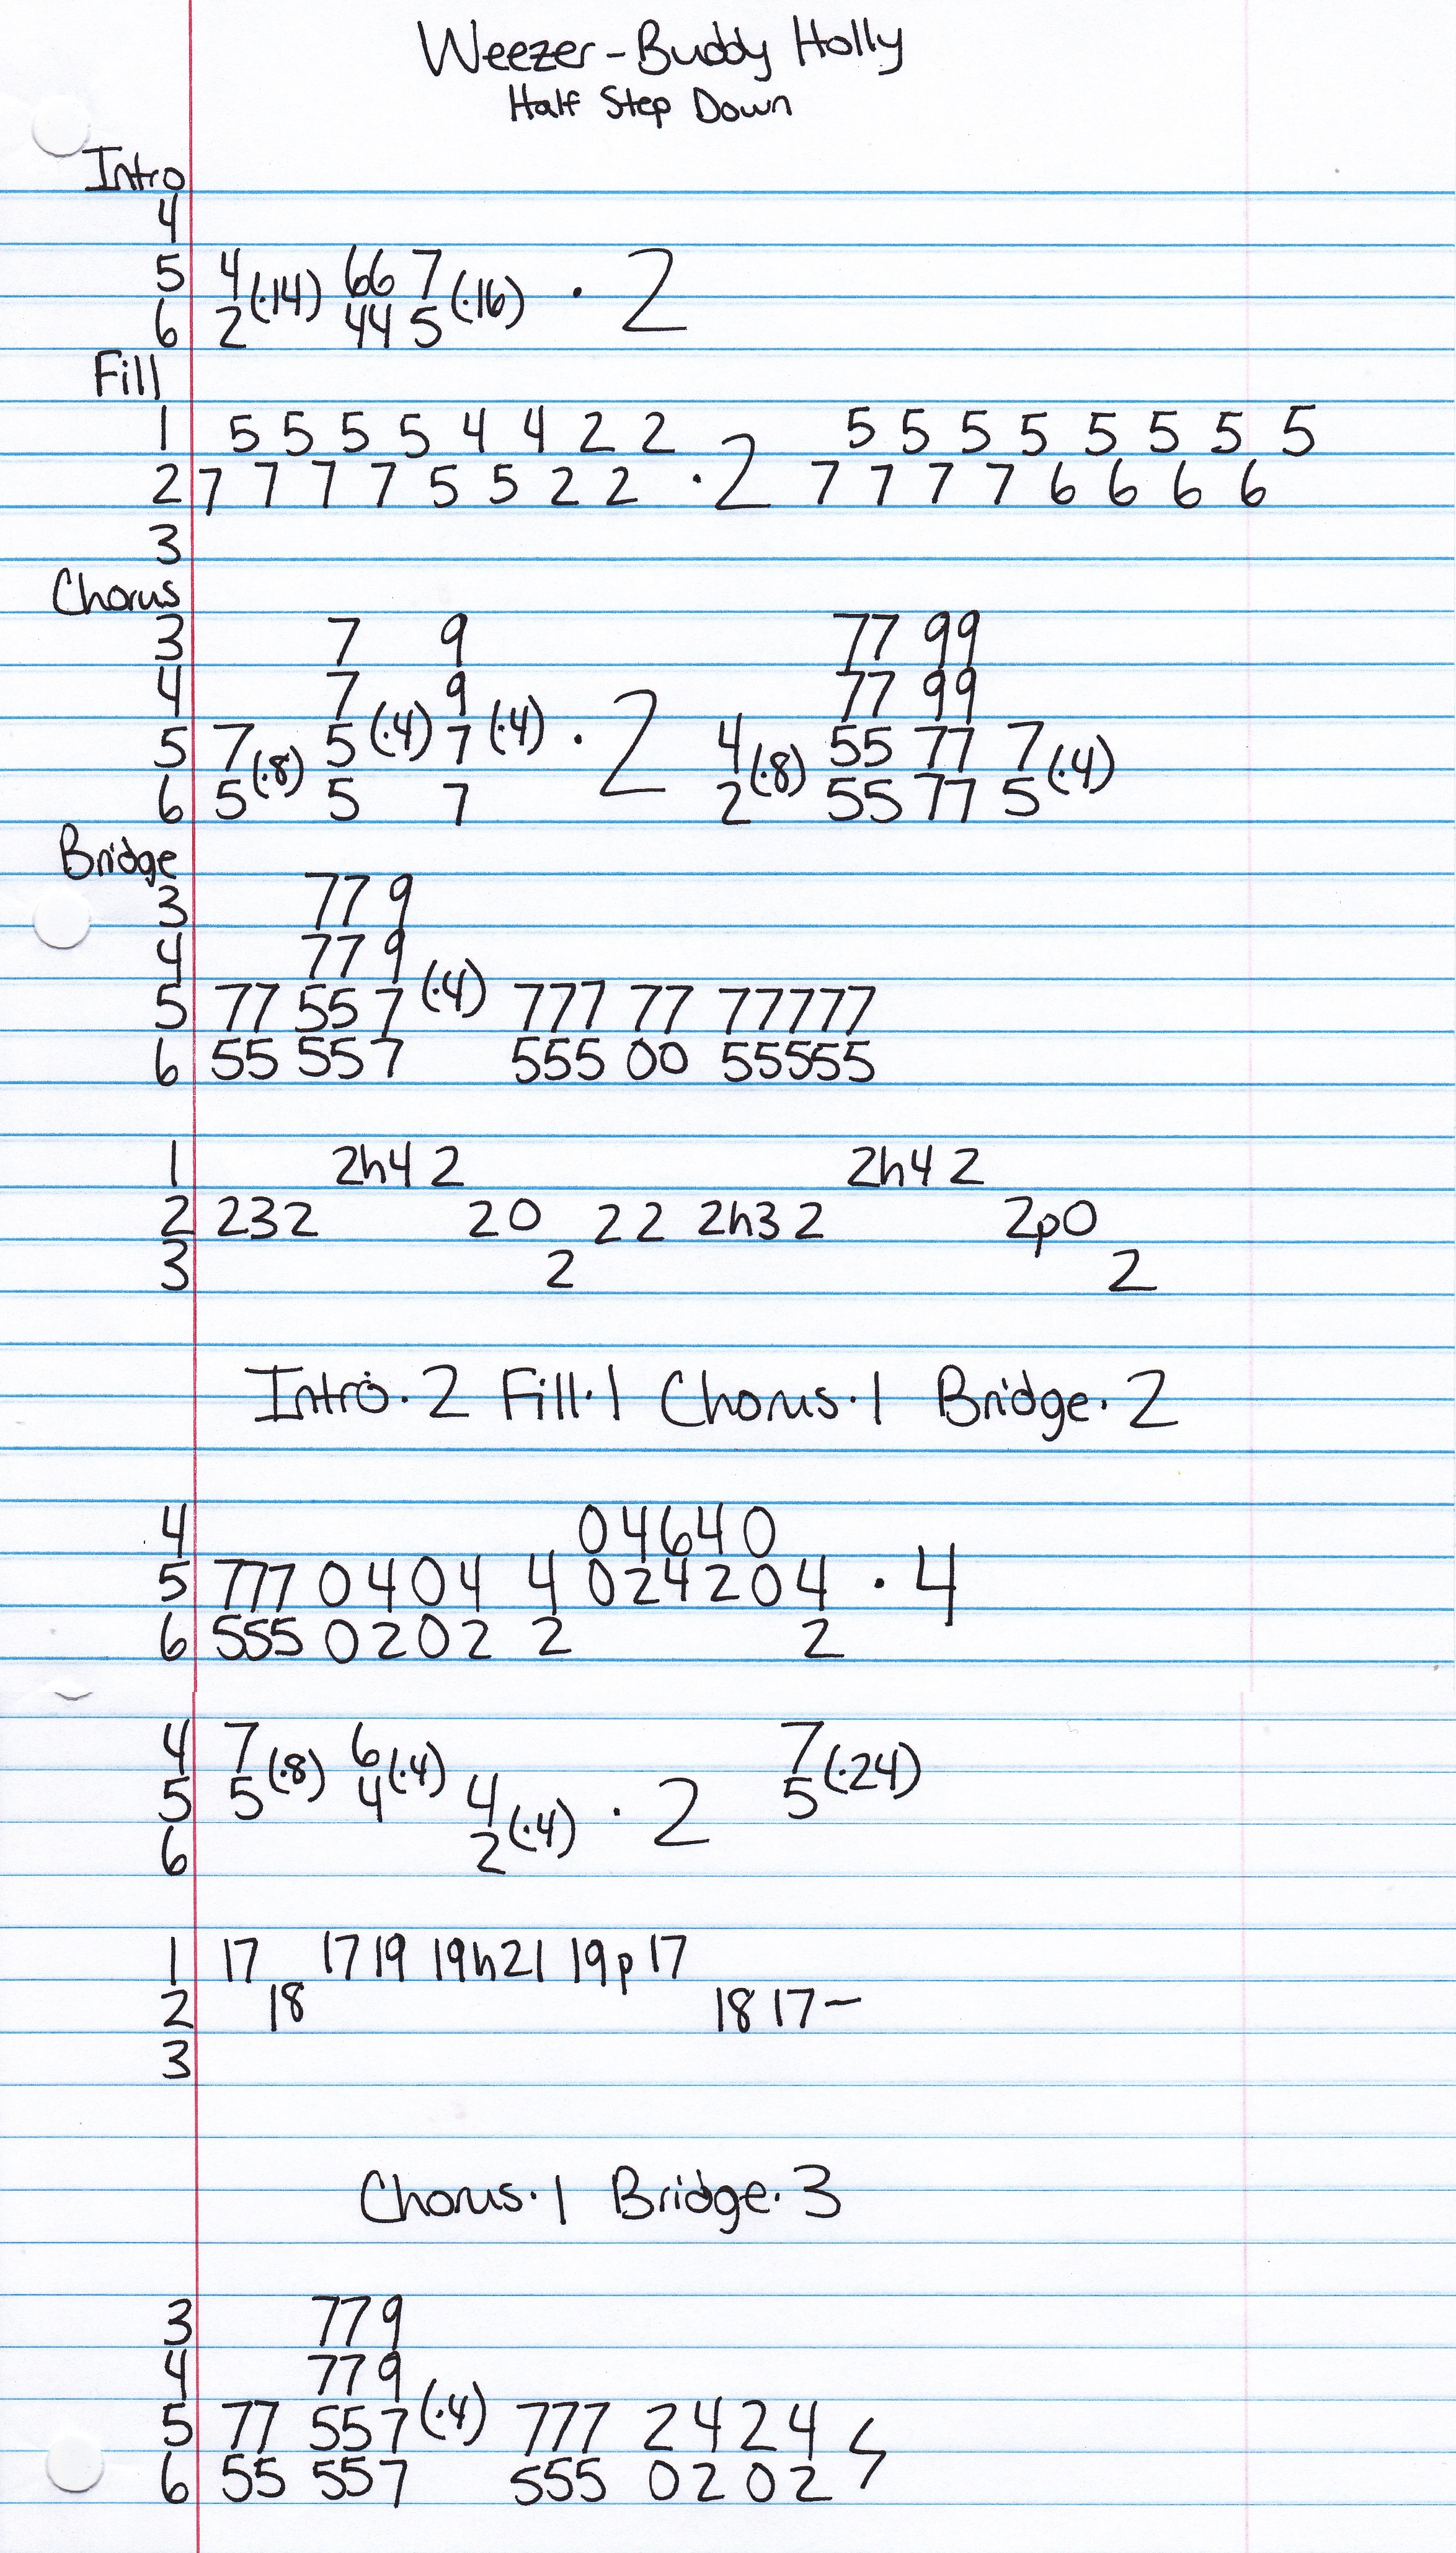 Weezer - Buddy Holly
Half Step Down
Intro
4
5 4 (·14) 66 7 (·16) · 2
6 2 44 5
Fill
1 5 5 5 5 4 4 2 2 5 5 5 5 5 5 5 5
2 7 7 7 7 5 5 2 2 · 2 7 7 7 7 6 6 6 6
3
Chorus
3 7 9 77 99
4 7 9 77 99
5 7 (·8) 5 (·4) 7 (·4) · 2 4 (·8) 55 77 7 (·4)
6 5 5 7 2 55 77 5
Bridge
3 77 9
4 77 9
5 77 55 7 (·4) 777 77 77777
6 55 55 7 555 00 55555
1 2h4 2 2h4 2
2 232 20 22 2h3 2 2p0
3 2 2
Intro·2 Fill·1 Chorus·1 Bridge·2
4 0 4 6 4 0
5 777 0 4 0 4 4 0 2 4 2 0 4 · 4
6 555 0 2 0 2 2 2
4 7 (·8) 6 (·4) 7 (·24)
5 5 4 4 (·4) · 2 5
6 2
1 17 17 19 19h21 19p17
2 18 18 17–
3
Chorus·1 Bridge·3
3 77 9
4 77 9
5 77 557 (·4) 777 2 4 2 4
6 55 557 555 0 2 0 2